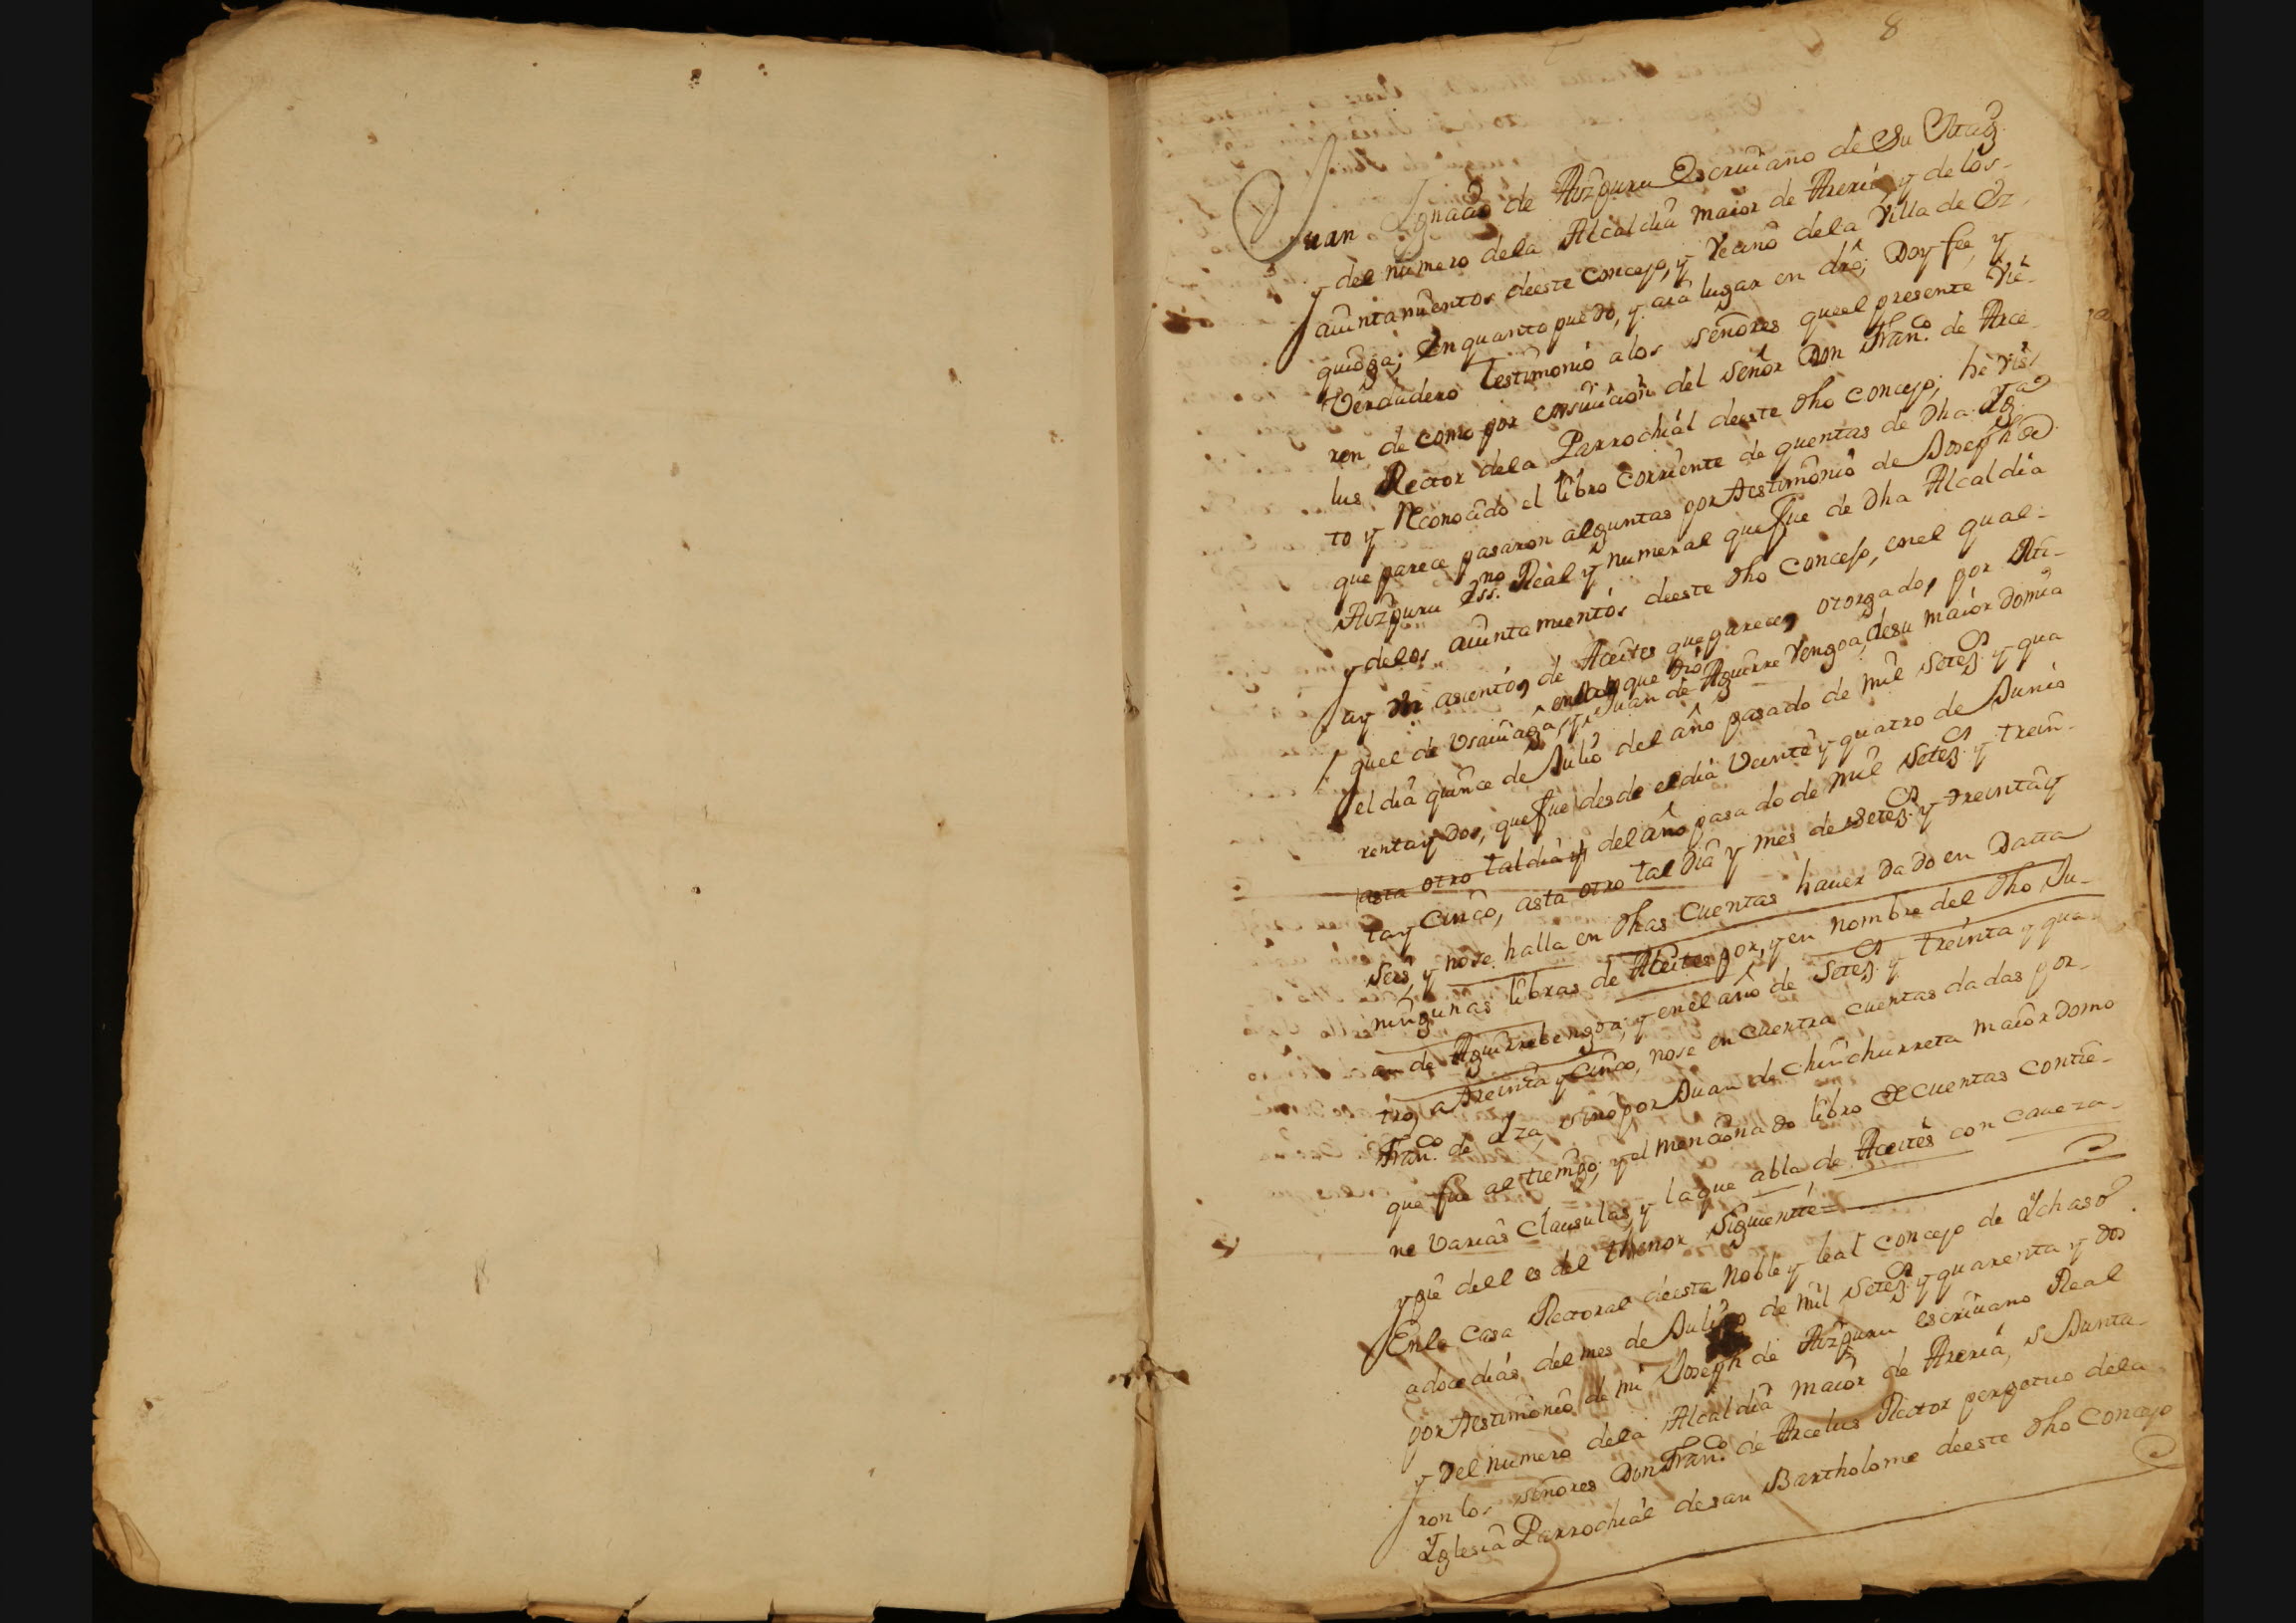 8
Juan Ygnacio de Aizpuru Escriuano de Su Mag.
y del numero dela Alcaldia maior de Areria y de los
aiuntamientos deeste Concejo, y Vecino dela Villa de Ez-
quioga; En quanto puedo, y aia lugar en dro; Doy fee, y
Verdadero Testimonio alos señores queel presente Vie-
ren de como por ensinuacion del señor Don Franco. de Arce-
lus Rector dela Parrochial deeste dho Concejo; he Vis-
to y Reconocido el libro Corriente de quentas de dha Yga.
que parece pasaron algunas por testimonio de Joseph de
Aizpuru Essno. Real y numeral que fue de dha Alcaldia
y delos aiuntamientos deeste dho Concejo, enel qual-
ay asiento, de Aceites que parece, otorgado, por Mi-
enlas que dio
guel de Vsauiaga, y Juan de Aguirre Vengoa, desu maiordomia
el dia quince de Julio del año pasado de mil setezs. y qua
renta y dos, que fue desde el dia Veinte y quatro de Junio
asta otro tal dia y del año pasado de mil setezs. y trein-
ta y Cinco, asta otro tal dia y mes de setezs. y treinta y
seis, y nose halla en dhas Cuentas hauer dado en Datta
ningunas libras de Aceites por, y en nombre del dho Ju-
an de Aguirrebengoa; y enel año de setezs. y treinta y qua-
tro, a treinta y Cinco, nose encuentra cuentas dadas por-
Franco. de Yza, sino por Juan de Chinchurreta maiordomo
que fue al tiempo; y el mencionado libro de cuentas contie-
ne Varias Clausulas, y la que abla de Aceites con caueza-
y pie dell es del thenor siguiente=
Enla Casa Rectoral deesta Noble y leal Concejo de Ychaso
a doce dias del mes de Julio de mil setezs. y quarenta y dos
por testimonio de mi Joseph de Aizpuru escriuano Real
y del numero dela Alcaldia maior de Areria, se Junta-
ron los señores Don Franco. de Arcelus Rector perpetuo dela
Yglesia Parrochial de san Bartholome deeste dho Concejo